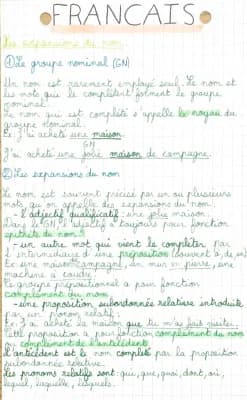 FRANCAIS
Les expansions du nom
① Le groupe nominal (GN)
Un nom est rarement employé seul. Le nom et
les mots que le complètent forment le groupe
nominal.
Le nom qui est complété s'appelle le noyau du
groupe nominal.
Ex: J'ai acheté une maison.
GN
J'ai acheté une jolie maison de campagne.
② Les expansions du nom
Le nom est souvent précisé par un ou plusieurs
mots qu'on appelle des expansions du nom.
- l'adjectif qualificatif: une jolie maison.
Dans le GN, l'adjectif a toujours pour fonction
épithète du nom.
- un autre mot qui vient le compléter par
l'intermédiaire d'une préposition (souvent à, de, en)
Ex: une maison campagne, un mur en pierre, une
machine à coudre.
Le groupe prépositionnel a pour fonction
complément du nom
- une proposition subordonnée relative introduite
par un pronom relatif:
Ex: J'ai acheté la maison que tu m'as fait visiter.
Cette proposition a pour fonction complément du nom
ou complément de l'antécédent.
L'antécédent est le nom complété par la proposition
subordonnée relative.
Les pronoms relatifs sont: qui, que, quoi, dont, où,
lequel, laquelle, lesquels.